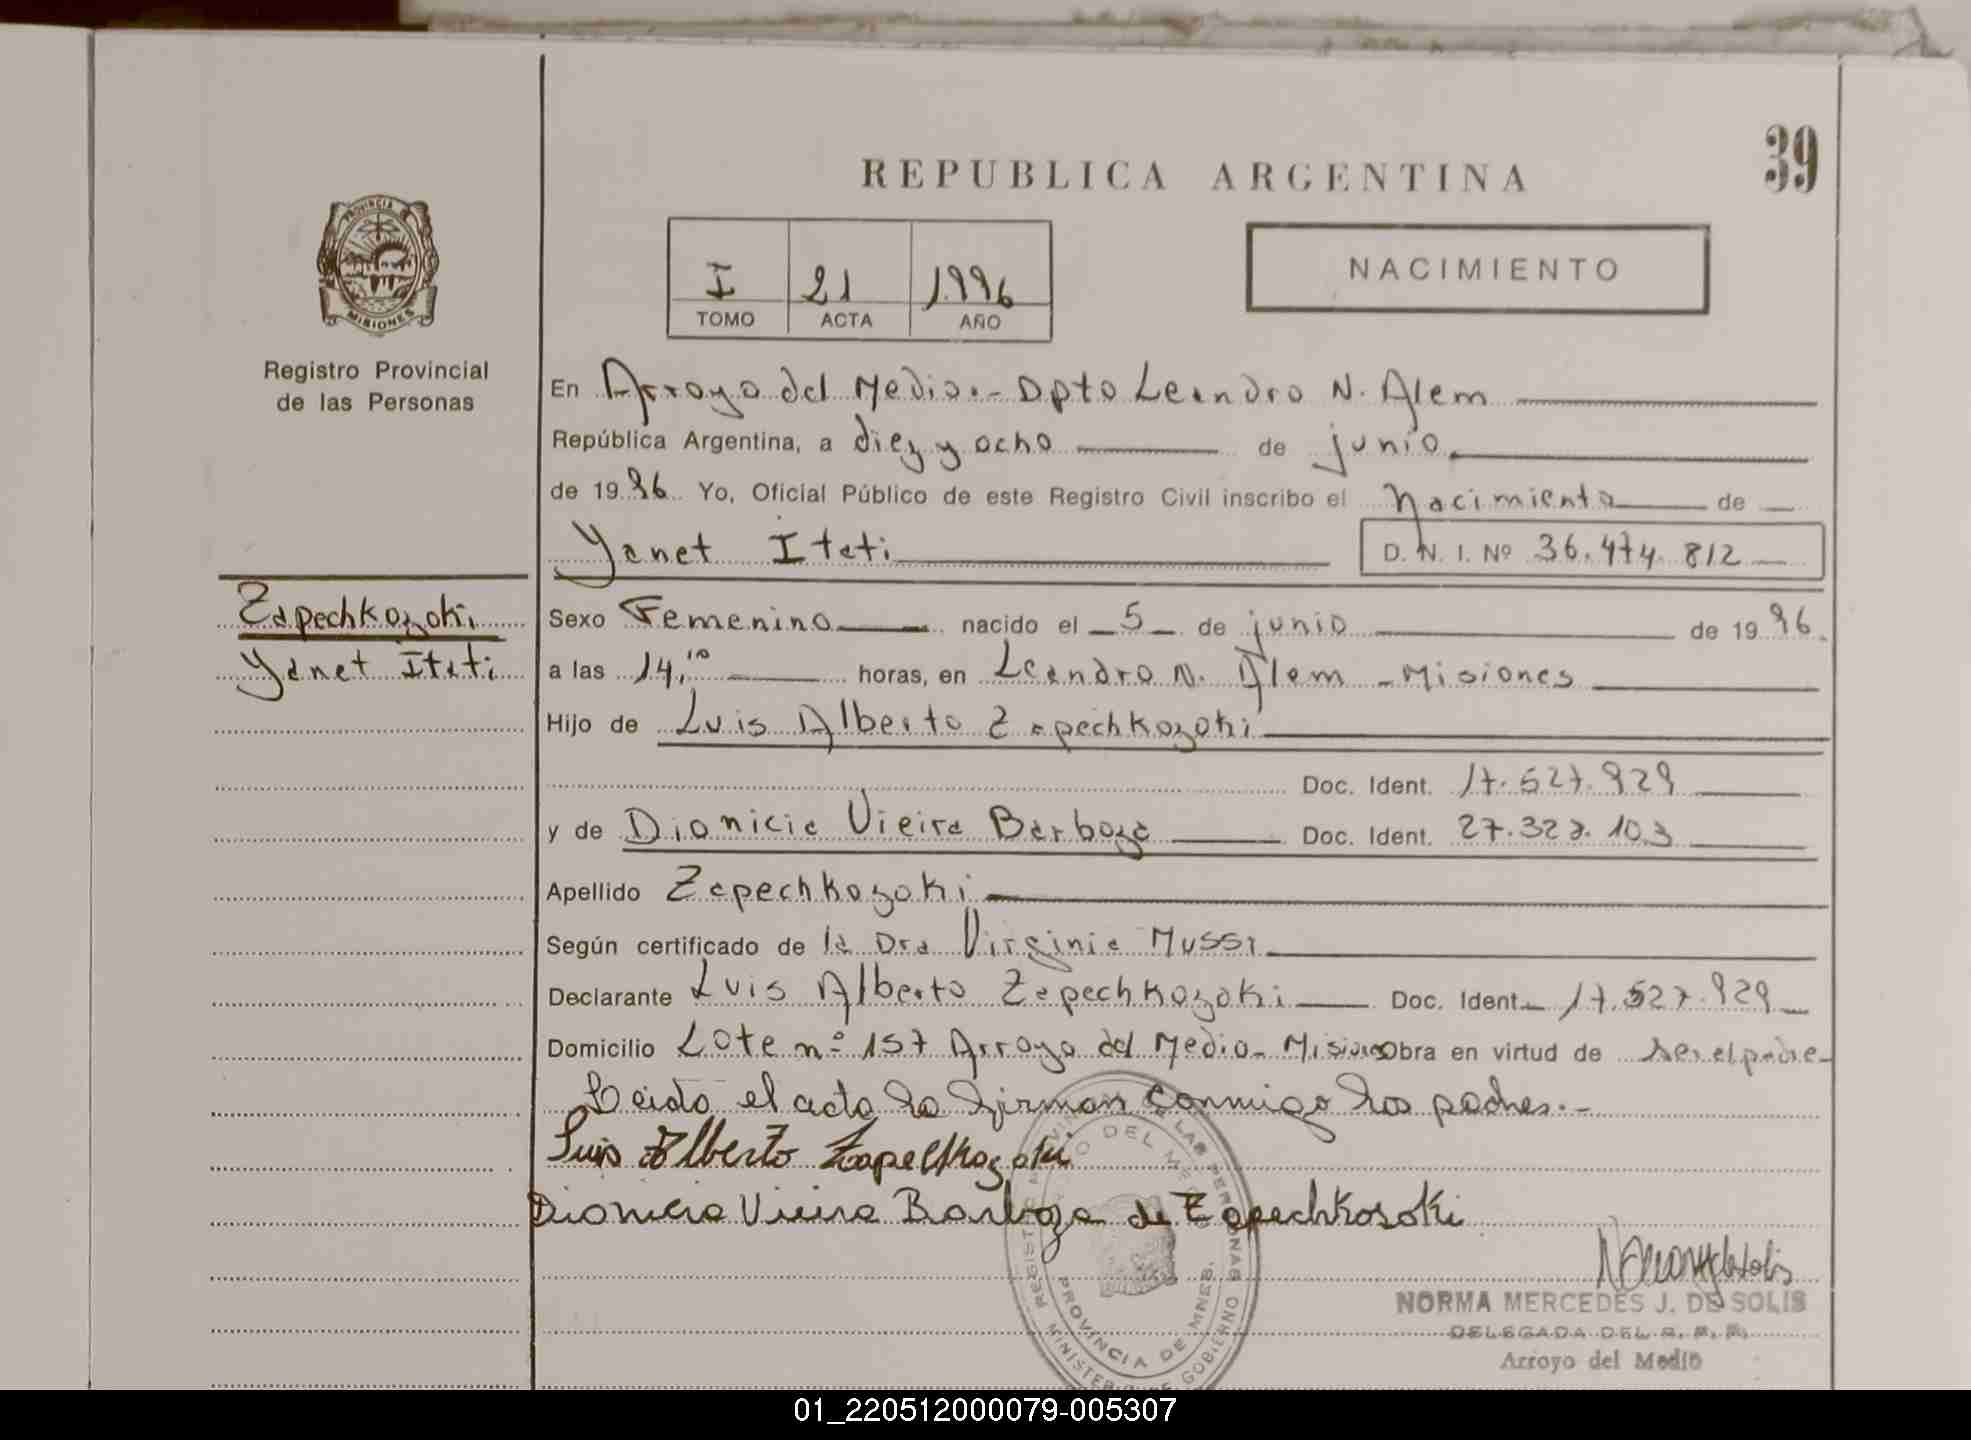 39
REPUBLICA ARGENTINA
PROVINCIA
MISIONES
Registro Provincial
de las Personas
I 21 1996
TOMO ACTA AÑO
NACIMIENTO
En Arroyo del Medio.- Dpto Leandro N. Alem
República Argentina, a diez y ocho de junio
de 1996 Yo, Oficial Público de este Registro Civil inscribo el Nacimiento de
Yanet Itati D. N. I. Nº 36.474.812
Zapechkozoki
Yanet Itati
Sexo Femenino nacido el 5 de junio de 1996.
a las 14,10 horas, en Leandro N. Alem - Misiones
Hijo de Luis Alberto Zapechkozoki
Doc. Ident. 17.527.929
y de Dionicia Vieira Barboza Doc. Ident. 27.327.103
Apellido Zapechkozoki
Según certificado de la Dra Virginia Mussi
Declarante Luis Alberto Zapechkozoki Doc. Ident. 17.527.929
Domicilio Lote nº 157 Arroyo del Medio - Misiones Obra en virtud de ser el padre-
Leida el acta la firman conmigo los padres.-
Luis Alberto Zapechkozoki
Dionicia Vieira Barboza de Zapechkosoki
NORMA MERCEDES J. DE SOLIS
DELEGADA DEL R. P. P.
Arroyo del Medio
PROVINCIA DE MNES.
01_220512000079-005307